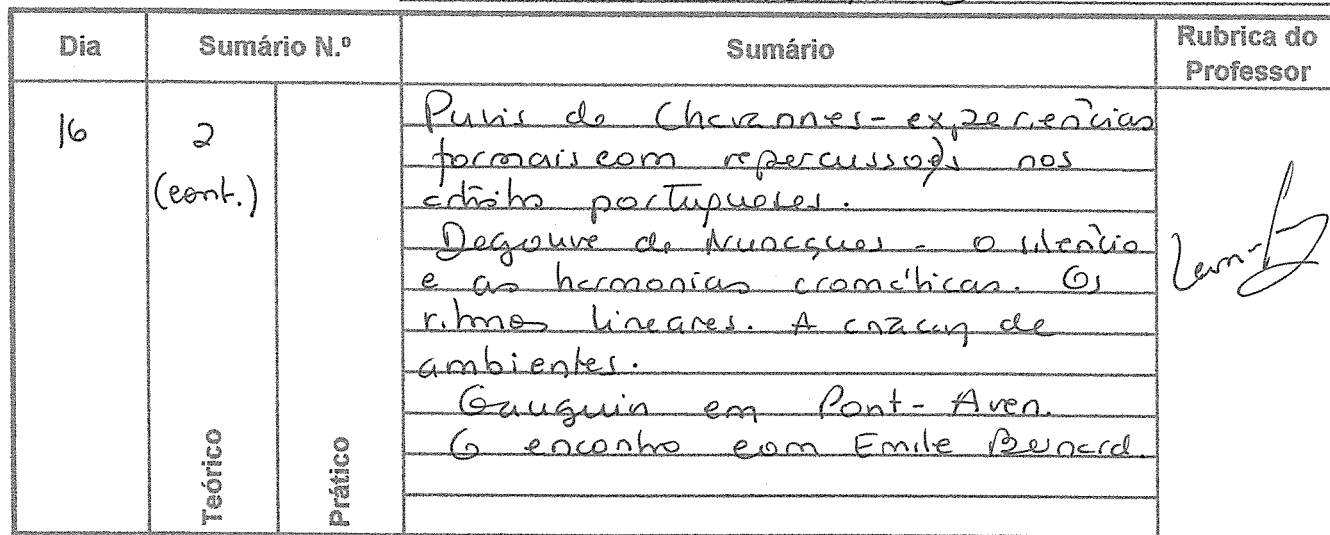 Dia
Sumário N.º
Sumário
Rubrica do
Professor
16
2
(cont.)
Teórico
Prático
Puvis de Chavannes - experiências
formais com repercussões nos
portugueses.
Degouve de Nuncques - o silêncio
e as harmonias cromáticas. Os
ritmos lineares. A criação de
ambientes.
Gauguin em Pont-Aven.
O encontro com Emile Bernard.